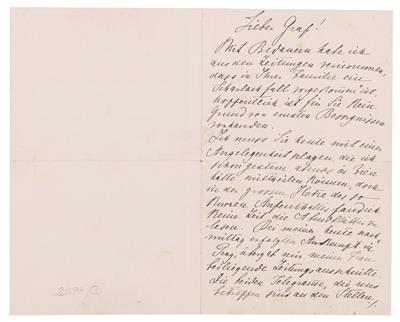 Lieber Graf!
Mit Bedauern habe ich
aus den Zeitungen vernommen,
dass in Ihrer Familie ein
Scharlachfall vorgekommen ist,
hoffentlich ist für Sie kein
Grund von ernsten Besorgnissen
vorhanden.
Ich muss Sie heute mit einer
Angelegenheit plagen, die ich
schon gestern abends in
hätte mittheilen können, doch
in der grossen Hetze des so
kurzen Aufenthaltes fand ich
keine Zeit die Abendblätter zu
lesen. Bei meiner heute nach
mittag erfolgten Ankunft in
Prag, übergab mir meine Frau
beiliegende Zeitungsausschnitte.
Die beiden Telegrame, die uns
betreffen sind an den Stellen